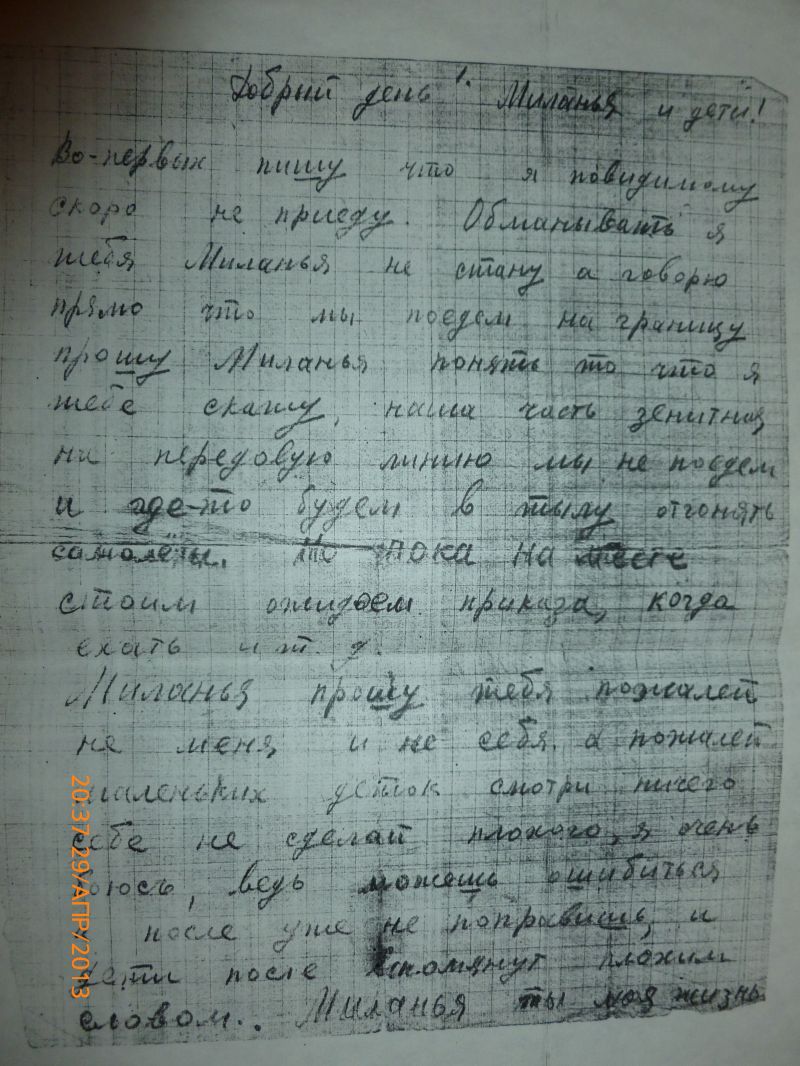 Добрый день! Миланья и дети!
Во-первых пишу что я повидимому
скоро не приеду. Обманывать я
тебя Миланья не стану а говорю
прямо что мы поедем на границу
прошу Миланья понять то что я
тебе скажу, наша часть зенитная
на передовую линию мы не поедем
и где-то будем в тылу отгонять
самолёты. Но пока на месте
стоим ожидаем приказа, когда
ехать и т. д.
Миланья прошу тебя пожалей
не меня и не себя а пожалей
маленьких деток смотри ничего
себе не сделай плохого, я очень
боюсь, ведь можешь ошибиться
и после уже не поправишь, и
дети после вспомянут плохим
словом.. Миланья ты моя жизнь
20:37:29/АПР/2013